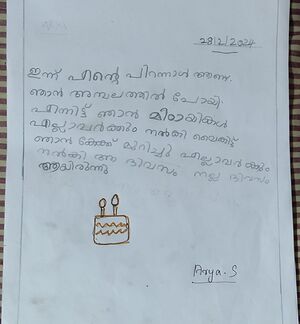 28/2/2024
ഇന്ന് എന്റെ പിറന്നാൾ ആണ.
ഞാൻ അമ്പലത്തിൽ പോയി.
എന്നിട്ട് ഞാൻ മിഠായികൾ
എല്ലാവർക്കും നൽകി വൈകിട്ട്
ഞാൻ കേക്ക് മുറിച്ചു എല്ലാവർക്കും
നൽകി ആ ദിവസം നല്ല ദിവസം
ആയിരുന്നു
Arya. S